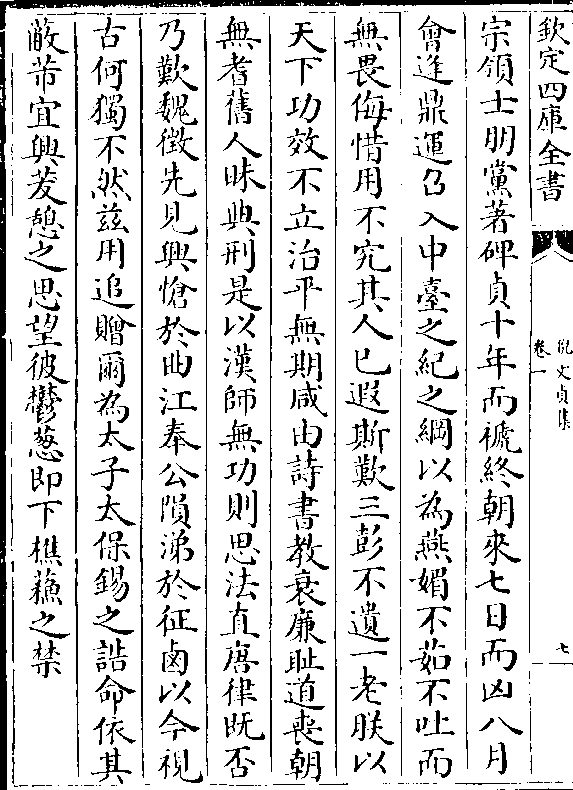 欽定四庫全書
倪文貞集
卷一
七
宗領士朋黨著碑貞十年而禠終朝來七日而凶八月
會逢鼎運召入中臺之紀之綱以為燕媚不茹不吐而
無畏侮惜用不究其人已遐斯歎三彭不遺一老朕以
天下功效不立治平無期咸由詩書教衰廉耻道喪朝
無耆舊人昧典刑是以漢師無功則思法直唐律既否
乃歎魏徴先見興愴於曲江奉公隕涕於征鹵以今視
古何獨不然兹用追贈爾為太子太保錫之誥命依其
蔽芾宜興茇憩之思望彼鬱葱即下樵蘓之禁